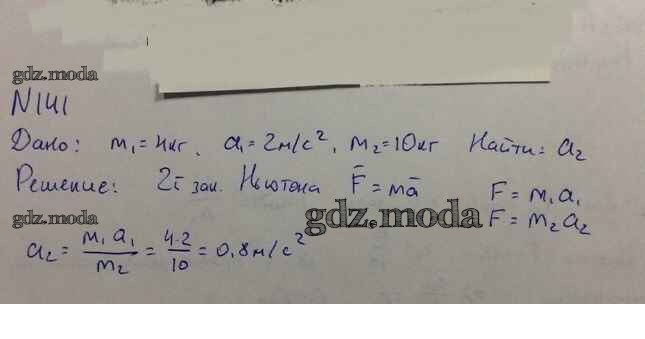 gdz.moda
N141
Дано: m₁ = 4кг, a₁ = 2м/с², m₂ = 10кг Найти: a₂
Решение: 2й зак. Ньютона F̄ = mā F = m₁a₁
gdz.moda gdz.moda F = m₂a₂
a₂ = m₁a₁/m₂ = 4·2/10 = 0,8м/с²